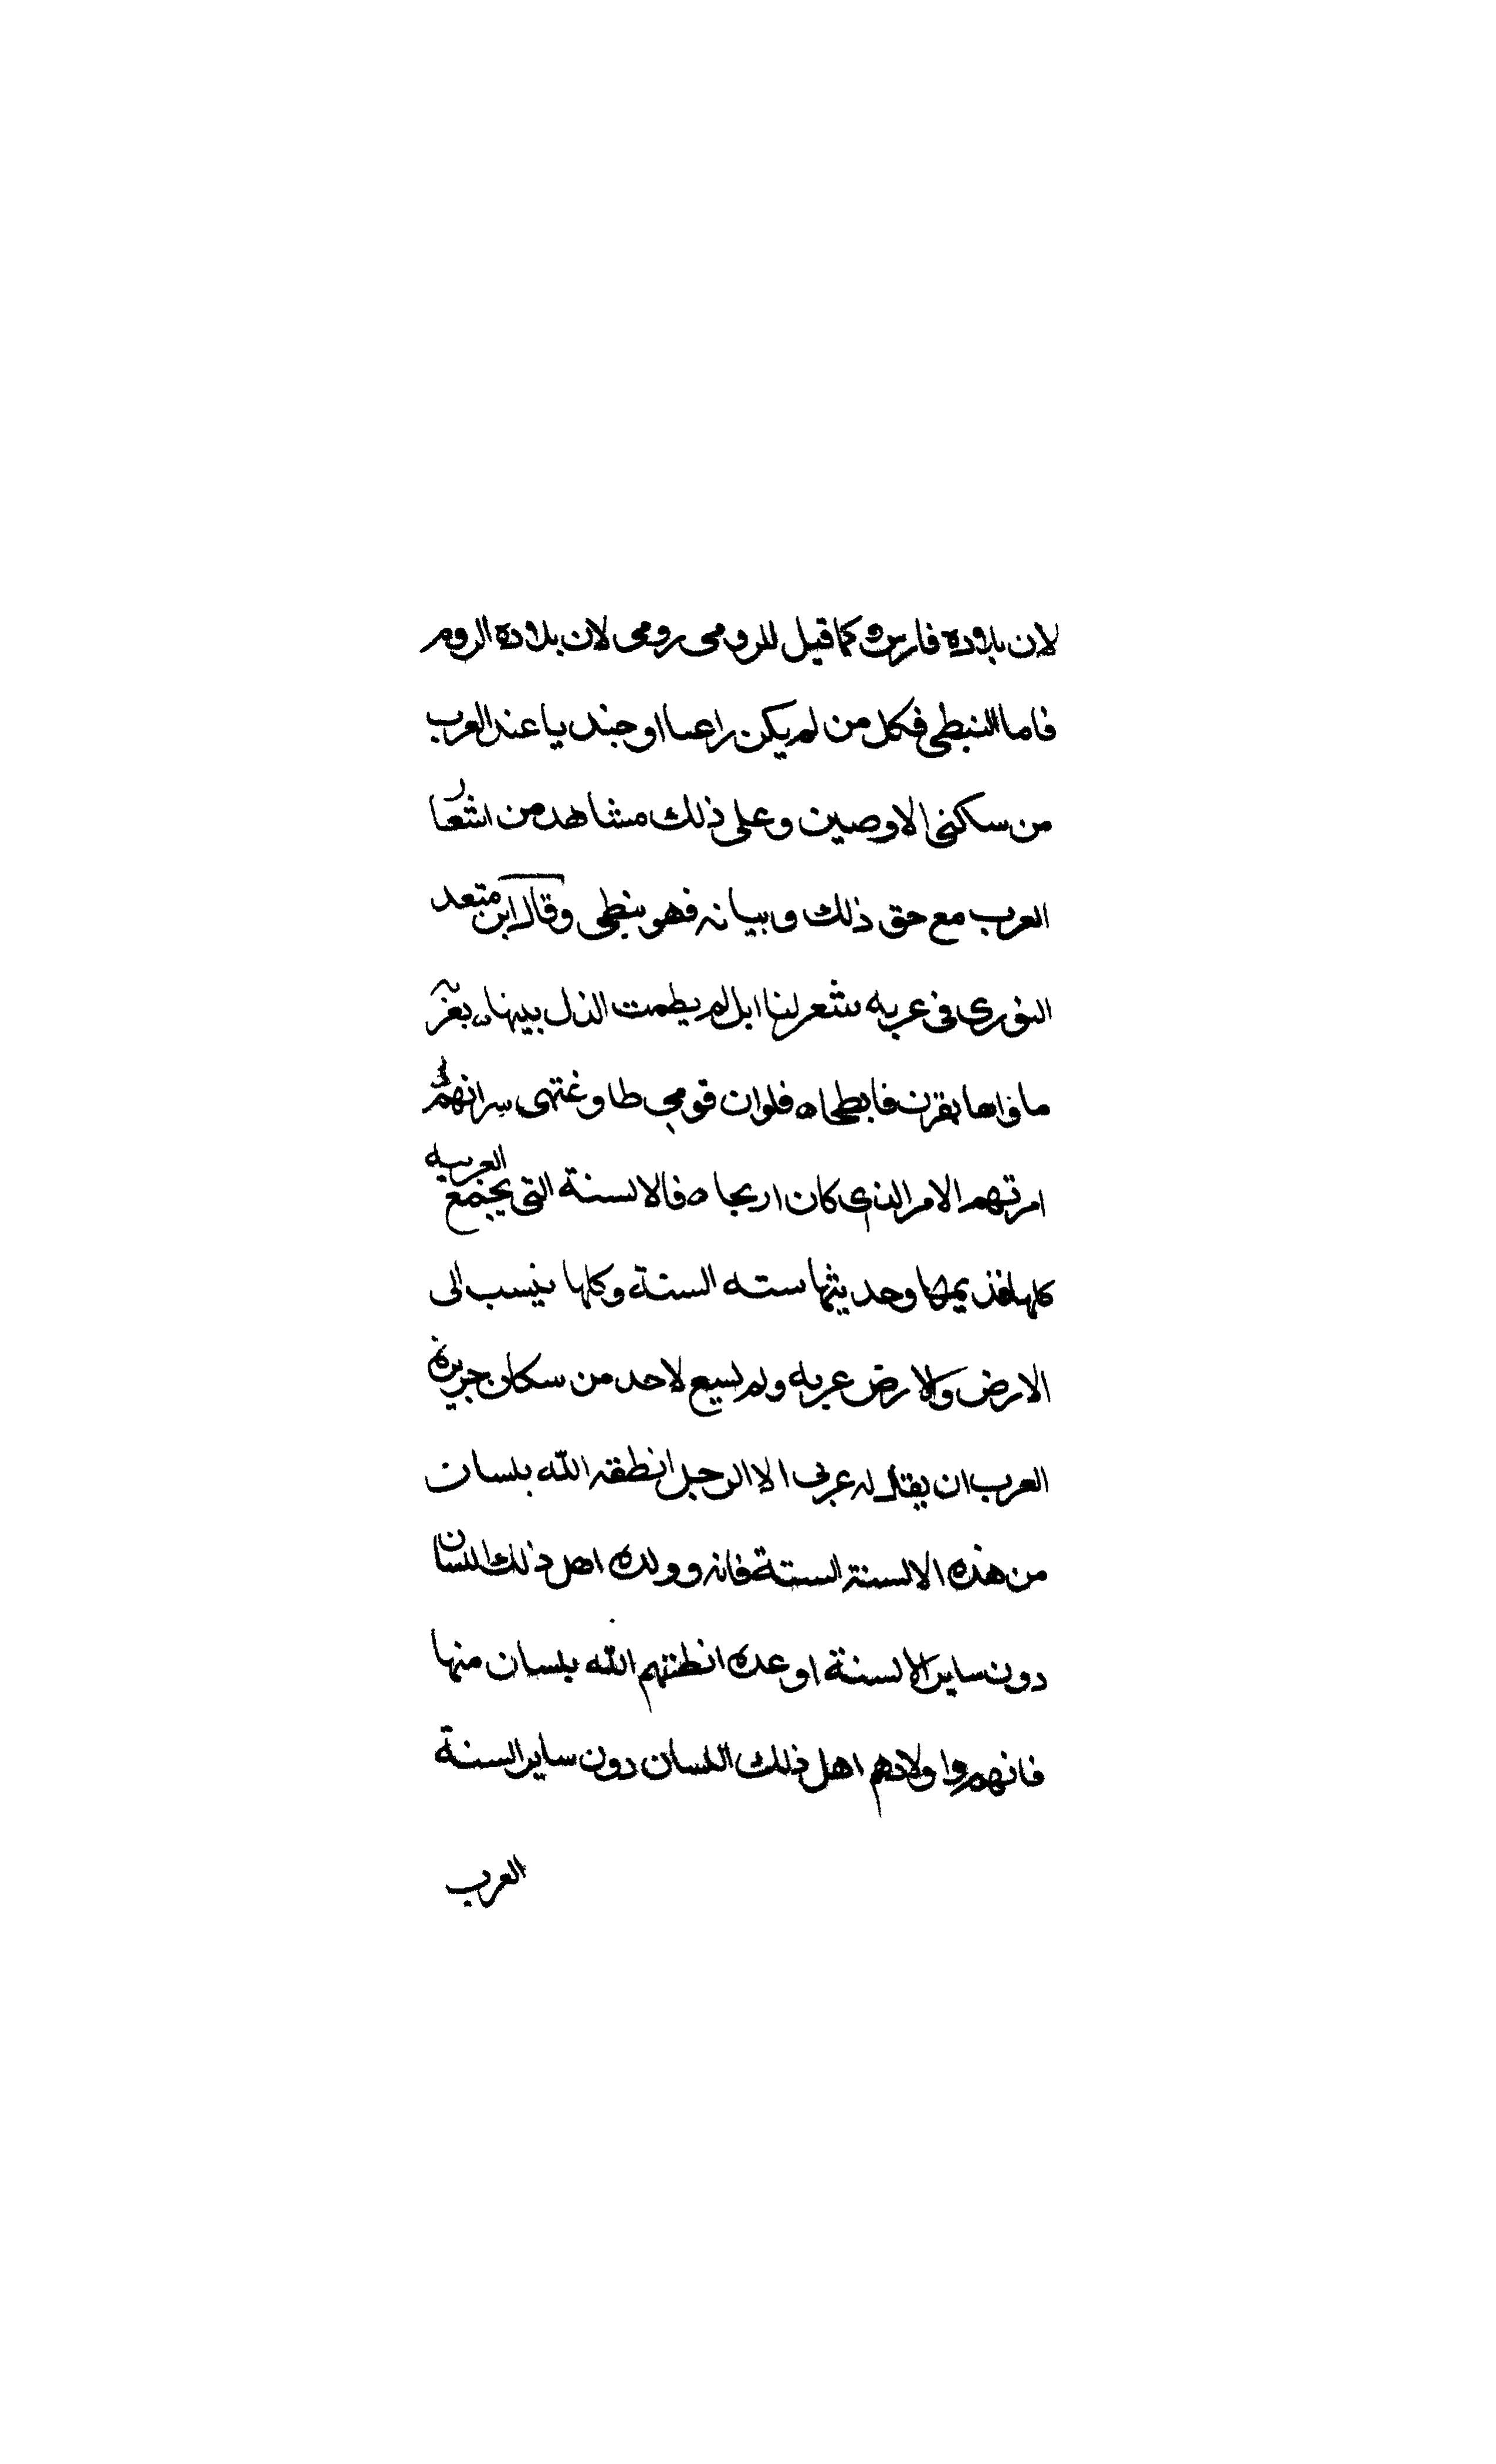 لان بلاده فارس كما قيل للرومى رومى لان بلاده الروم
فاما النبطى فكل من لم يكن راعيا او جنديا عند العرب
من ساكنى الارضين وعلى ذلك مشاهد من اشعار
العرب مع حق ذلك وبيانه فهو نبطى وقال ابن
الثورى فى عربه شعر لنا ابل لم يطمث الذل بينها
ماواها بقرن فابطحاه فلوان قومى طاوعتنى سراتهم
امرتهم الامر الذى كان اربحا ه فالالسنة التى يجمع العربيه
كلها قديمها وحديثها سته السنة وكلها ينسب الى
الارض والارض عربه ولم يسع لاحد من سكان جزيرة
العرب ان يقال له عربى الا الرجل انطقه الله بلسان
من هذه الالسنة الستة فانه وولده اهل ذلك اللسان
دون ساير الالسنة او عده انطقهم الله بلسان منها
فانهم واولادهم اهل ذلك اللسان دون ساير السنة
العرب